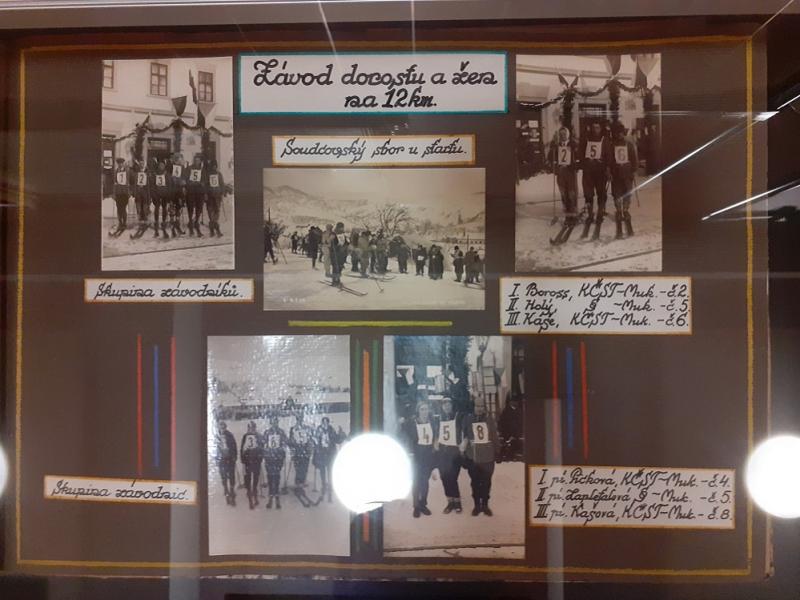 Závod dorostu a žen
na 12km.
Soudcovský sbor u startu.
Skupina závodníků.
I. Boross, KČST-Muk. -č.2.
II. Holý, § -Muk. -č.5.
III. Káše, KČST-Muk. -č.6.
1 2 3 4 5 6
2 5 6
Skupina závodnic.
3 6
4 5 8
I. pí. KČST-Muk. -č.4.
II. pí. Zaplefalová, § -Muk. -č.5.
III. pí. Kašová, KČST-Muk. -č.8.